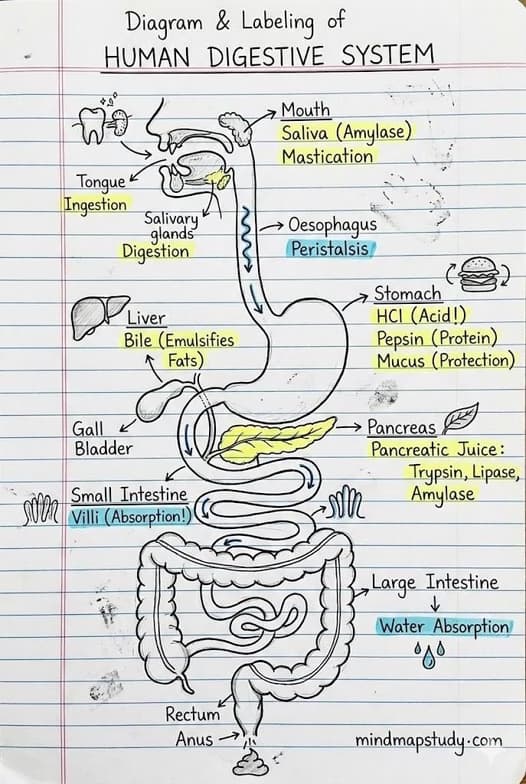 Diagram & Labeling of
HUMAN DIGESTIVE SYSTEM
Mouth
Saliva (Amylase)
Mastication
Tongue
Ingestion
Salivary
glands
Digestion
Oesophagus
Peristalsis
Stomach
HCl (Acid!)
Pepsin (Protein)
Mucus (Protection)
Liver
Bile (Emulsifies
Fats)
Gall
Bladder
Pancreas
Pancreatic Juice:
Trypsin, Lipase,
Amylase
Small Intestine
Villi (Absorption!)
Large Intestine
Water Absorption
Rectum
Anus
mindmapstudy.com